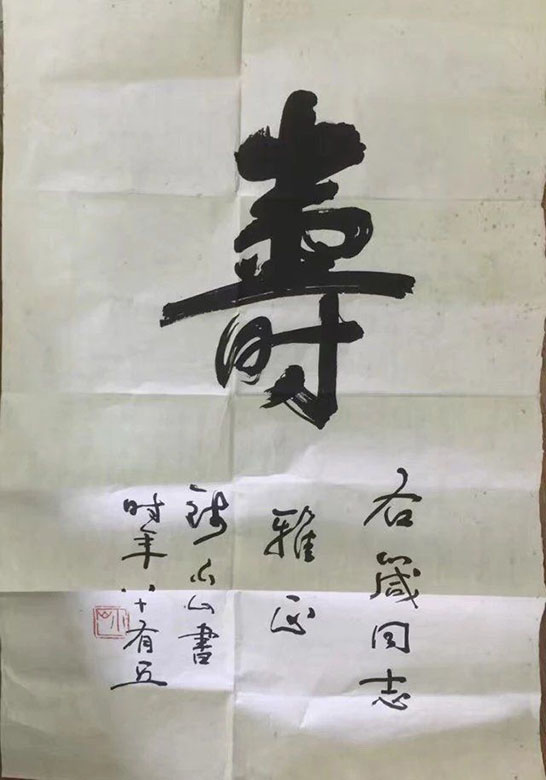 壽
右箴同志
雅正
小山書
时年八十有五